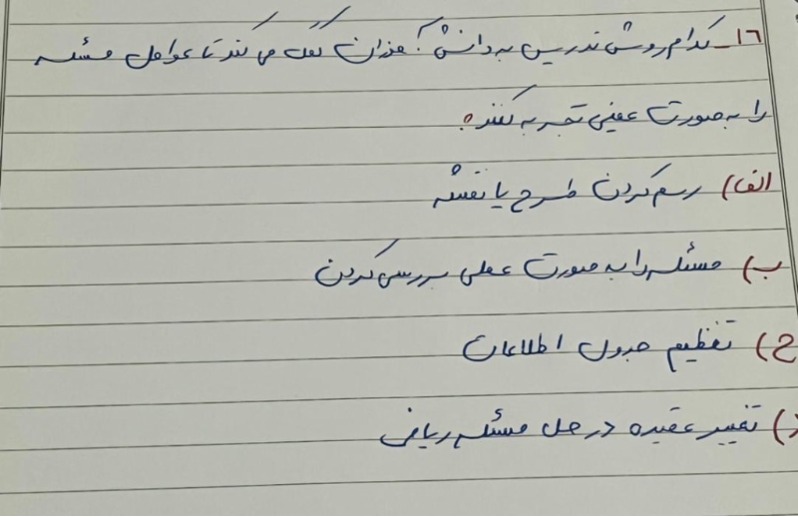 ۱۶_ کدام روش تدریس به دانش آموزان کمک می کند تا عوامل مسئله
را به صورت عینی تجربه کنند؟
الف) رسم کردن طرح یا نقشه
ب) مسئله را به صورت عملی بررسی کردن
ج) تنظیم جدول اطلاعات
د) تغییر عقیده در حل مسئله ریاضی